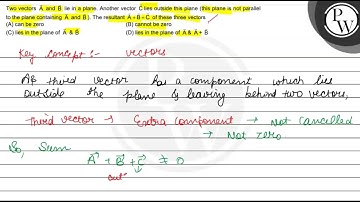 Two vectors A⃗ and B⃗ lie in a plane. Another vector C⃗ lies outside this plane (this plane is not parallel
to the plane containing A⃗ and B⃗). The resultant A⃗ + B⃗ + C⃗ of these three vectors
(A) can be zero (B) cannot be zero
(C) lies in the plane of A⃗ & B⃗ (D) lies in the plane of A⃗ & A⃗ + B⃗
PW
Key concept :- vectors
A third vector has a component which lies
outside the plane is leaving behind two vectors,
Third vector → Extra component → Not cancelled
→ Not zero
So, Sum
A⃗ + B⃗ + C⃗ ≠ 0
out